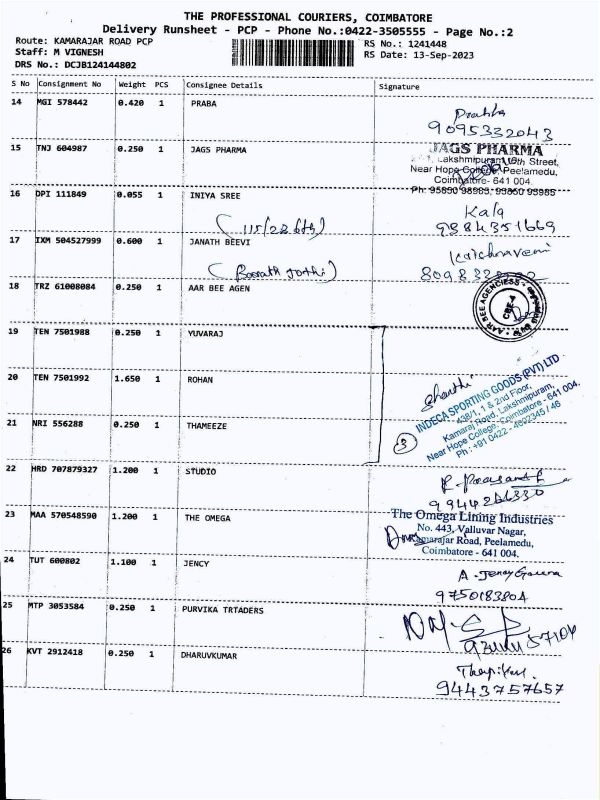 THE PROFESSIONAL COURIERS, COIMBATORE
Delivery Runsheet - PCP - Phone No.:0422-3505555 - Page No.:2
Route: KAMARAJAR ROAD PCP
RS No.: 1241448
Staff: M VIGNESH
RS Date: 13-Sep-2023
DRS No.: DCJB124144802
S No Consignment No Weight PCS Consignee Details Signature
14 MGI 578442 0.420 1 PRABA
Prabha
9095332043
15 TNJ 604987 0.250 1 JAGS PHARMA
JAGS PHARMA
Lakshmipuram Street,
Near Hope College, Peelamedu,
Coimbatore- 641 004.
Ph: 95850 98985,
16 DPI 111849 0.055 1 INIYA SREE
Kala
9384351669
17 IXM 504527999 0.600 1 JANATH BEEVI
18 TRZ 61008084 0.250 1 AAR BEE AGEN
AAR BEE AGENCIESS
CBE-4
19 TEN 7501988 0.250 1 YUVARAJ
20 TEN 7501992 1.650 1 ROHAN
INDECA SPORTING GOODS (PVT) LTD
438/1, 1 & 2nd Floor,
Kamaraj Road, Lakshmipuram,
Near Hope College, Coimbatore - 641 004.
Ph : +91 0422 - 4602345 / 46
21 NRI 556288 0.250 1 THAMEEZE
3
22 HRD 707879327 1.200 1 STUDIO
23 MAA 570548590 1.200 1 THE OMEGA
The Omega Lining Industries
No. 443, Valluvar Nagar,
Kamarajar Road, Peelamedu,
Coimbatore - 641 004.
24 TUT 600802 1.100 1 JENCY
9750183804
25 MTP 3053584 0.250 1 PURVIKA TRTADERS
26 KVT 2912418 0.250 1 DHARUVKUMAR
9443757657